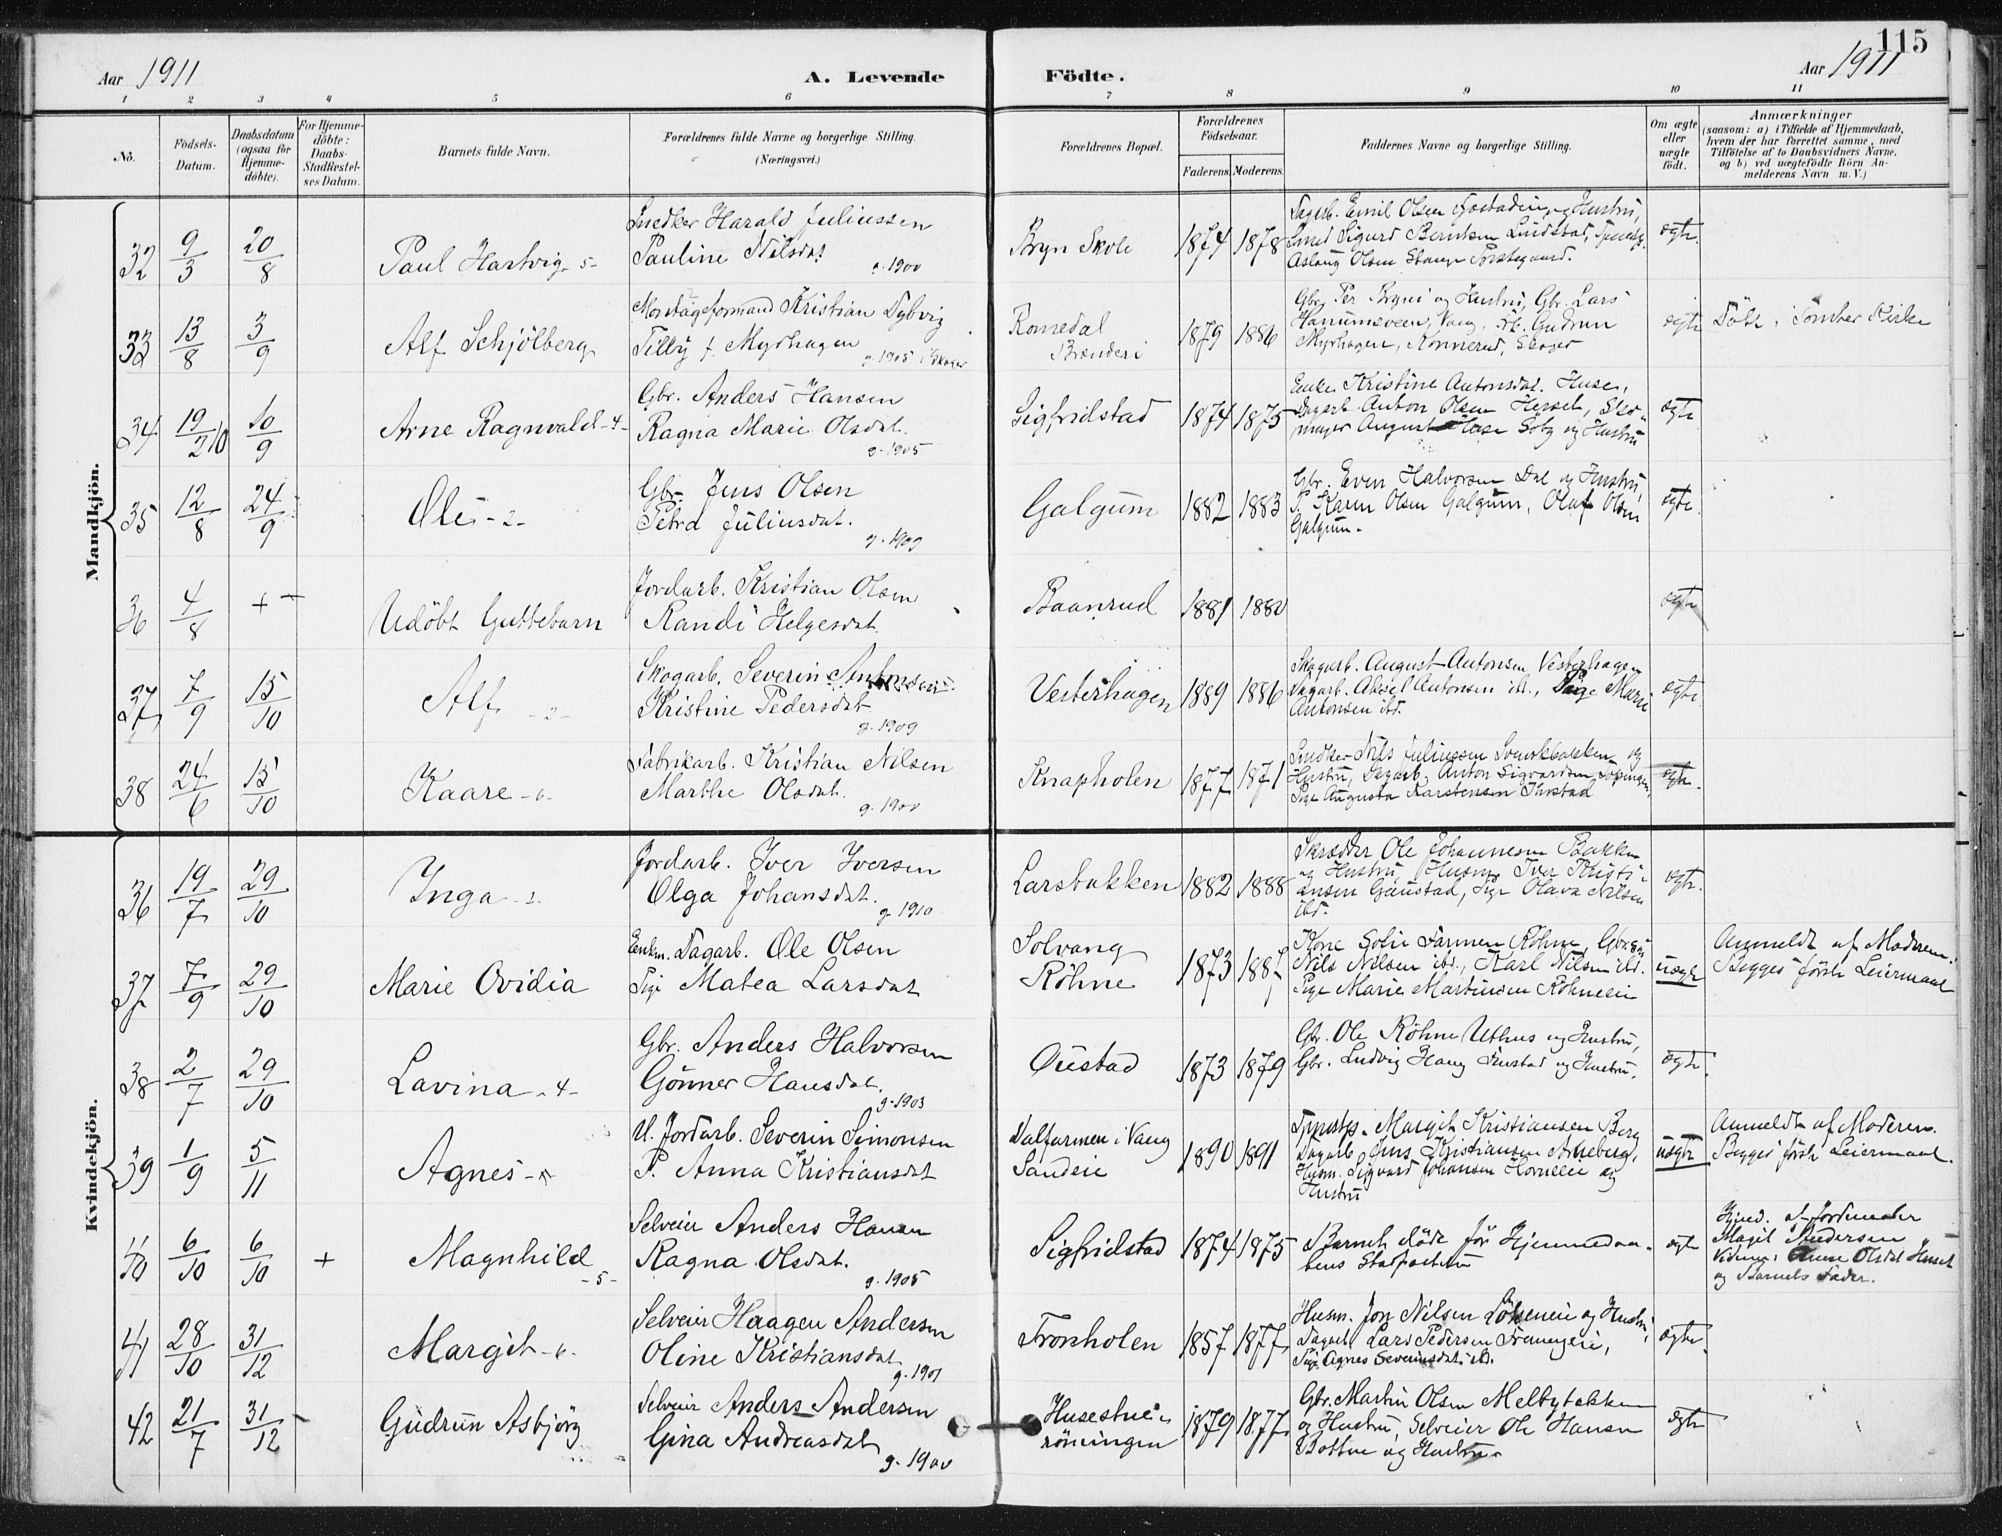 115
Aar 1911
A. Levende Födte.
Aar 1911
1 2 3 4 5 6 7 8 9 10 11
No.
Födsels-Datum.
Daabsdatum (ogsaa for Hjemme-döbte).
For Hjemme-döbte: Daabs-Stadfæstel-ses Datum.
Barnets fulde Navn.
Forældrenes fulde Navne og borgerlige Stilling.
(Næringsvei.)
Forældrenes Bopæl.
Forældrenes Födselsaar.
Faderens. Moderens.
Faddernes Navne og borgerlige Stilling.
Om ægte eller uægte födt.
Anmærkninger
(saasom: a) i Tilfælde af Hjemmedaab,
hvem der har forrettet samme, med
Tilföielse af to Daabsvidners Navne,
og b) ved uægtefödte Börn An-
melderens Navn m. V.)
Mandkjön.
32 9/3 20/8 Paul Hartvig -5-
Snedker Harald Juliussen
Pauline Nilsdat.
g. 1900
Bryn Skole 1874 1878
Dagarb. Emil Olsen og Hustru,
Smed Sigurd Berntsen Lindstad,
Aslaug Olsen Stange
ægte.
33 13/8 3/9 Alf Schjölberg
Kristian Dybvig
Tilly f. Myrhagen
g. 1905 i Skoger
Romedal
Brænderi 1879 1886
Gbr. Per Bryni og Hustru, Gbr. Lars
Vang, Gudrun
Myrhagen, Konnerud, Skoger
ægte Döbt i Tomter Kirke
34 19/210 10/9 Arne Ragnvald -4-
Gbr. Anders Hansen
Ragna Marie Olsdat.
g. 1905
Sigfridstad 1874 1875
Enke Kristine Antonsdat. Huse,
Dagarb. Anton Olsen Hersel, Sko-
mager August Huse Söby og Hustru
ægte
35 12/8 24/9 Ole -2-
Gbr. Jens Olsen
Petra Juliusdat.
g. 1909
Galgum 1882 1883
Gbr. Even Halvorsen Dal og Hustru,
P. Karen Olsen Galgum, Olaf Olsen
Galgum.
ægte.
36 4/8 + - Udöbt Guttebarn
Jordarb. Kristian Olsen
Randi Helgesdat.
Baanrud 1881 1880
ægte
37 7/9 15/10 Alf -2-
Skogarb. Severin Antonsen
Kristine Pedersdat
g. 1909
Vesterhagen 1889 1886
Skogarb. August Antonsen Vesterhagen
Dagarb. Aksel Antonsen ibd., Pige Marie
Antonsen ibd.
ægte.
38 24/6 15/10 Kaare -6-
Fabrikarb. Kristian Nilsen
Marthe Olsdat.
g. 1900
Knapholen 1877 1871
Snedker Nils Juliussen og
Hustru, Dagarb. Anton Sigvardsen
Pige Augusta Karstensen
ægte.
Kvindekjön.
36 19/7 29/10 Inga -2-
Jordarb. Iver Iversen
Olga Johansdat.
g. 1910
Larsbakken 1882 1888
Skrædder Ole Johannesen Bakken
og Hustru, Husm. Iver Kristi-
ansen Gaustad, Pige Olava Nilsen
ibd.
ægte.
37 7/9 29/10 Marie Ovidia
Enkm. Dagarb. Ole Olsen
Pige Matea Larsdat
Solvang
Röhne 1873 1887
Kone Solie Farmen Röhne,
Nils Nilsen ibd., Karl Nilsen ibd.
Pige Marie Martinsen Röhneeie
uægte
Anmeldt af Moderen.
Begges förste Leiermaal
38 2/7 29/10 Lavina -4-
Gbr. Anders Halvorsen
Gönner Hansdat.
g. 1903
Oustad 1873 1879
Gbr. Ole Röhne Uthus og Hustru,
Gbr. Ludvig Haug og Hustru.
ægte.
39 1/9 5/11 Agnes
U. Jordarb. Severin Simonsen
P. Anna Kristiansdat
Dalfarmen i Vang
Sandeie 1890 1891
Margit Kristiansen Berg
Dagarb. Jens Kristiansen Arneberg,
Husm. Sigvard Johansen Horneeie og
Hustru
uægte
Anmeldt af Moderen.
Begges förste Leiermaal.
40 6/10 6/10 + Magnhild -5-
Selveier Anders Hansen
Ragna Olsdat.
g. 1905
Sigfridstad 1874 1875
Barnet döde för Hjemmedaa-
bens Stadfæstelse
ægte
Hjmd. af Jordmoder
Magil Pedersen
Vidner: Anne Olsdat Huset
og Barnets Fader.
41 28/10 31/12 Margit -6-
Selveier Haagen Andersen
Oline Kristiansdat
g. 1901
Fronholen 1857 1877
Husm. Jon Nilsen og Hustru,
Dagarb. Lars Pedersen
Pige Agnes Severinsdat ibd.
ægte.
42 21/7 31/12 - Gudrun Asbjörg
Selveier Anders Andersen
Gina Andreasdat
g. 1900
Husestue i
röningen 1879 1877
Gbr. Martin Olsen Melbybakken
og Hustru, Selveier Ole Hansen
og Hustru.
ægte